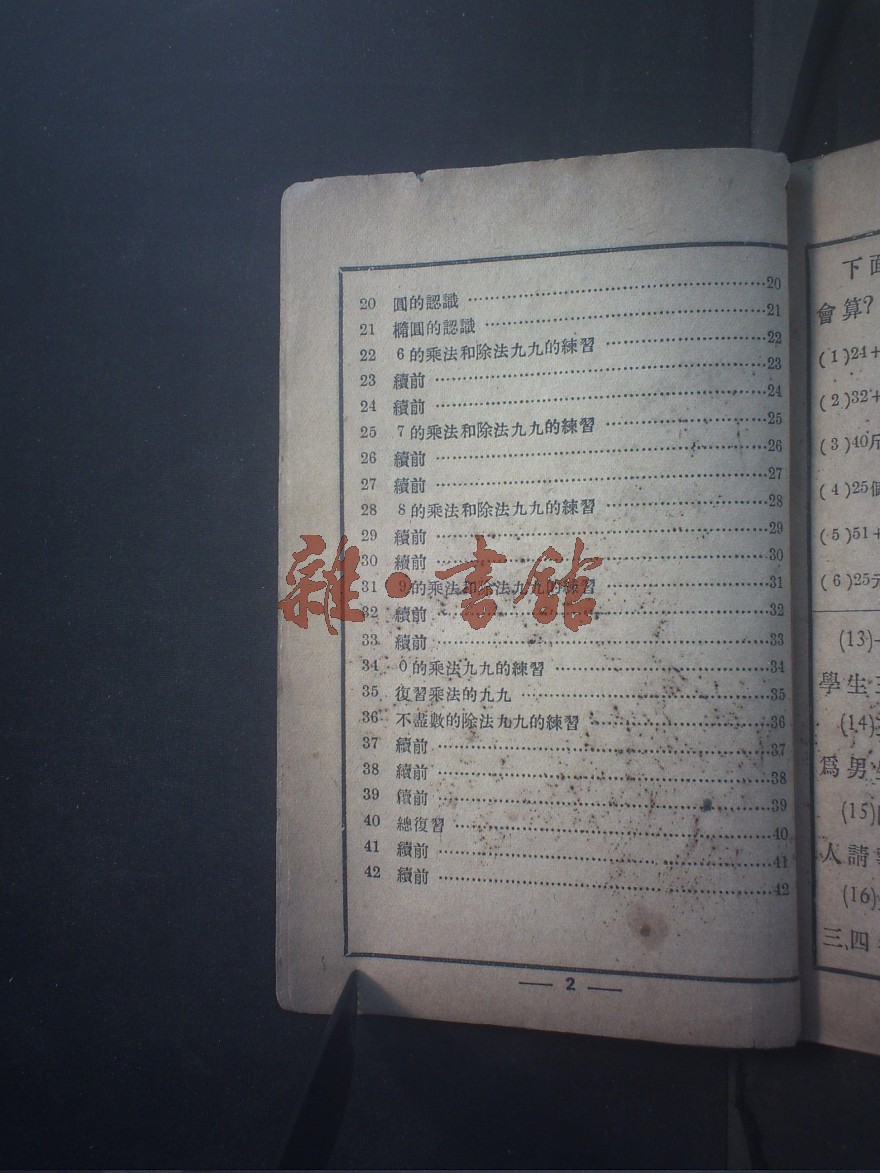 20 圓的認識 ……………………………20
21 橢圓的認識 …………………………21
22 6的乘法和除法九九的練習 …………22
23 續前 …………………………………23
24 續前 …………………………………24
25 7的乘法和除法九九的練習 …………25
26 續前 …………………………………26
27 續前 …………………………………27
28 8的乘法和除法九九的練習 …………28
29 續前 …………………………………29
30 續前 …………………………………30
31 9的乘法和除法九九的練習 …………31
32 續前 …………………………………32
33 續前 …………………………………33
34 0的乘法九九的練習 …………………34
35 復習乘法的九九 ……………………35
36 不盡數的除法九九的練習 …………36
37 續前 …………………………………37
38 續前 …………………………………38
39 續前 …………………………………39
40 總復習 ………………………………40
41 續前 …………………………………41
42 續前 …………………………………42
— 2 —
雜·書館
下面
會算?
(1)24+
(2)32+
(3)40斤
(4)25個
(5)51+
(6)25元
(13)
學生
(14)
爲男
(15)
人請
(16)
三、四